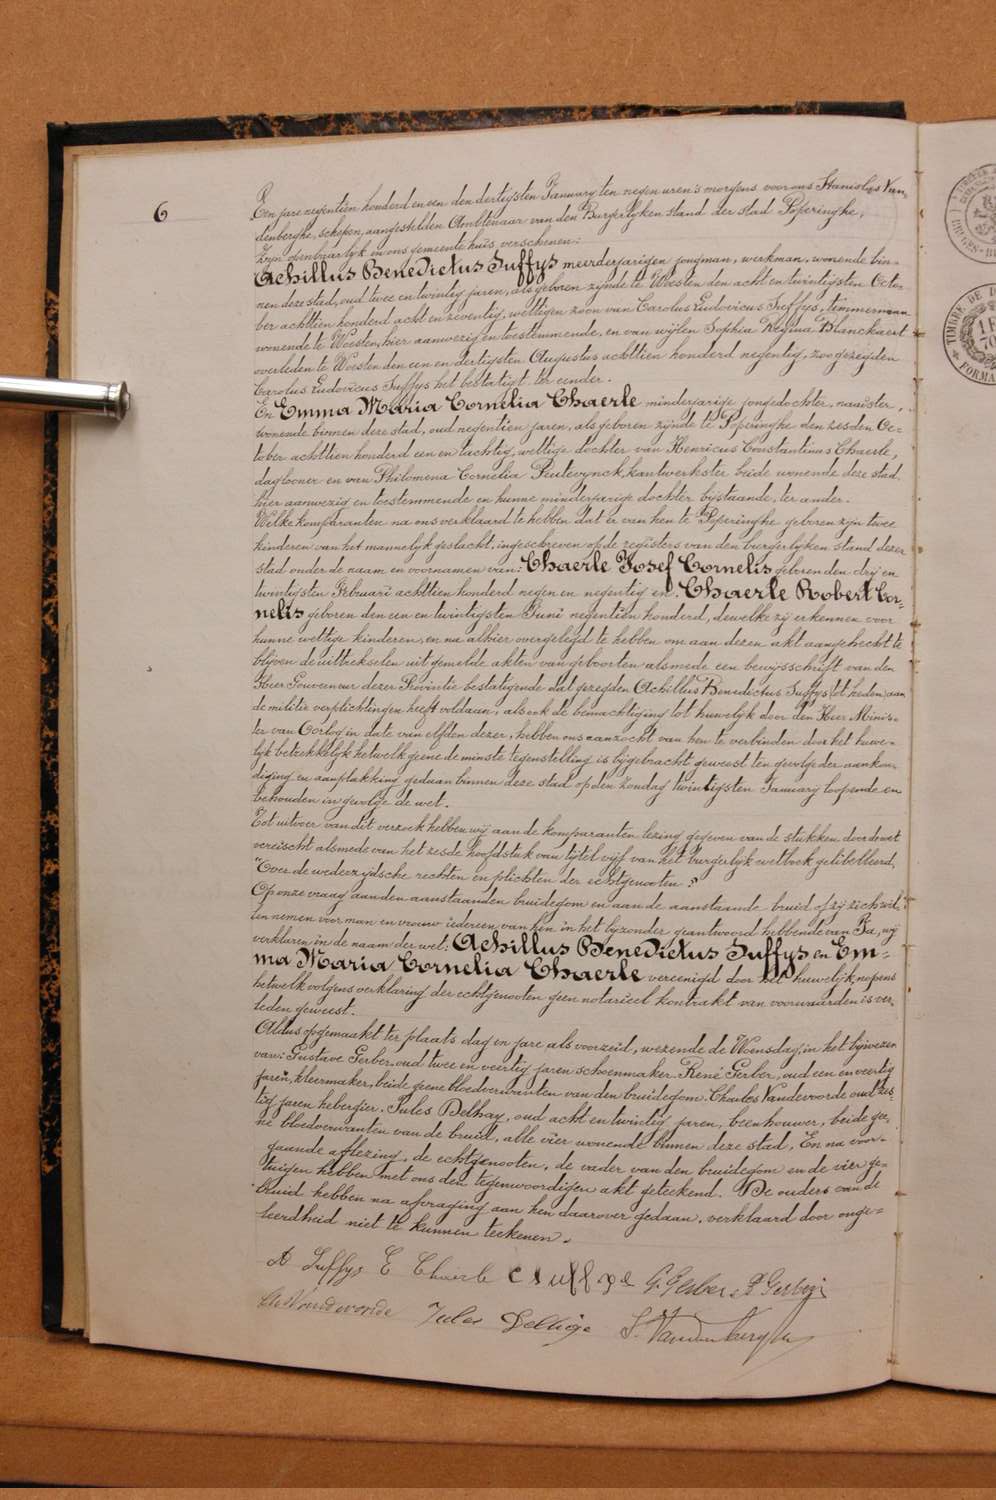 6
Een jare negentien honderd en een den dertigsten January ten negen uren 's morgens voor ons Stanislas Van-
denberghe, schepen, aangestelden Ambtenaar van den Burgerlyken stand der stad Poperinghe,
Zyn openbaarlyk in ons gemeente huis verschenen:
Achillus Benedictus Suffys meerderjarigen jongman, werkman, wonende bin-
nen deze stad, oud twee en twintig jaren, als geboren zynde te Woesten den acht en twintigsten Octo-
ber achttien honderd acht en zeventig, wettigen zoon van Carolus Ludovicus Suffys, timmerman
wonende te Woesten, hier aanwezig en toestemmende, en van wijlen Sophia Regina Blanckaert
overleden te Woesten den een en dertigsten Augustus achttien honderd negentig, zoo gezegden
Carolus Ludovicus Suffys het bestatigt ter eender.
En Emma Maria Cornelia Chaerle minderjarige jongedochter, naaister,
wonende binnen deze stad, oud negentien jaren, als geboren zynde te Poperinghe den zesden Oc-
tober achttien honderd een en tachtig, wettige dochter van Henricus Constantinus Chaerle,
daglooner en van Philomena Cornelia Peutevynck, kantwerkster beide wonende deze stad
hier aanwezig en toestemmende en hunne minderjarige dochter bystaande, ter ander.
Welke komparanten na ons verklaard te hebben dat er van hen te Poperinghe geboren zyn twee
kinderen van het mannelyk geslacht, ingeschreven op de registers van den burgerlyken stand dezer
stad onder de naam en voornamen van: Chaerle Josef Cornelis geboren den dry en
twintigsten Februari achttien honderd negen en negentig en: Chaerle Robert Cor-
nelis geboren den een en twintigsten Juni negentien honderd, dewelke zy erkennen voor
hunne wettige kinderen, en na alhier overgelegd te hebben om aan dezen akt aangehecht te
blyven de uittrekselen uit gemelde akten van geboorten alsmede een bewysschrift van den
Heer Gouverneur dezer Provintie bestatigende dat gezegden Achillus Benedictus Suffys tot heden aan
de militie verplichtingen heeft voldaan, alsook de bemachtiging tot huwelyk door den Heer Minis-
ter van Oorlog in date van elfden dezer, hebben ons aanzocht van hen te verbinden door het huwe-
lyk betrekkelyk hetwelk geene de minste tegenstelling is bygebracht geweest ten gevolge der aankon-
diging en aanplakking gedaan binnen deze stad op den Zondag twintigsten January loopende en
behouden in gevolge de wet.
Tot uitvoer van dit verzoek hebben wy aan de komparanten lezing gegeven van de stukken door de wet
vereischt alsmede van het zesde hoofdstuk van tytel vyf van het burgerlyk wetboek gelibelleerd,
"Over de wederzydsche rechten en plichten der echtgenooten"
Op onze vraag aan den aanstaanden bruidegom en aan de aanstaande bruid of zy zich wil-
len nemen voor man en vrouw iedereen van hen in het byzonder geantwoord hebbende van Ja, wy
verklaren in de naam der wet: Achillus Benedictus Suffys en Em-
ma Maria Cornelia Chaerle vereenigd door het huwelyk nopens
hetwelk volgens verklaring der echtgenooten geen notarieel kontrakt van voorwaarden is ver-
leden geweest.
Aldus opgemaakt ter plaats dag en jare als voorzeid, wezende de Woensdag, in het bywezen
van: Gustave Gerber, oud twee en veertig jaren schoenmaker. René Gerber, oud een en veertig
jaren, kleermaker, beide geene bloedverwanten van den bruidegom. Charles Vandevoorde oud zes-
tig jaren hebergier. Jules Delhay, oud acht en twintig jaren, beenhouwer, beide gee-
ne bloedverwanten van de bruid, alle vier wonende binnen deze stad. En na voor-
gaande aflezing, de echtgenooten, de vader van den bruidegom en de vier ge-
tuigen hebben met ons den tegenwoordigen akt geteekend. De ouders van de
bruid hebben na afvraging aan hen daarover gedaan, verklaard door onge-
leerdheid niet te kunnen teekenen.
A Suffys E Chaerle C Suffys G. Gerber R Gerber
Ch Vandevoorde Jules Delhaye S. Vandenberghe